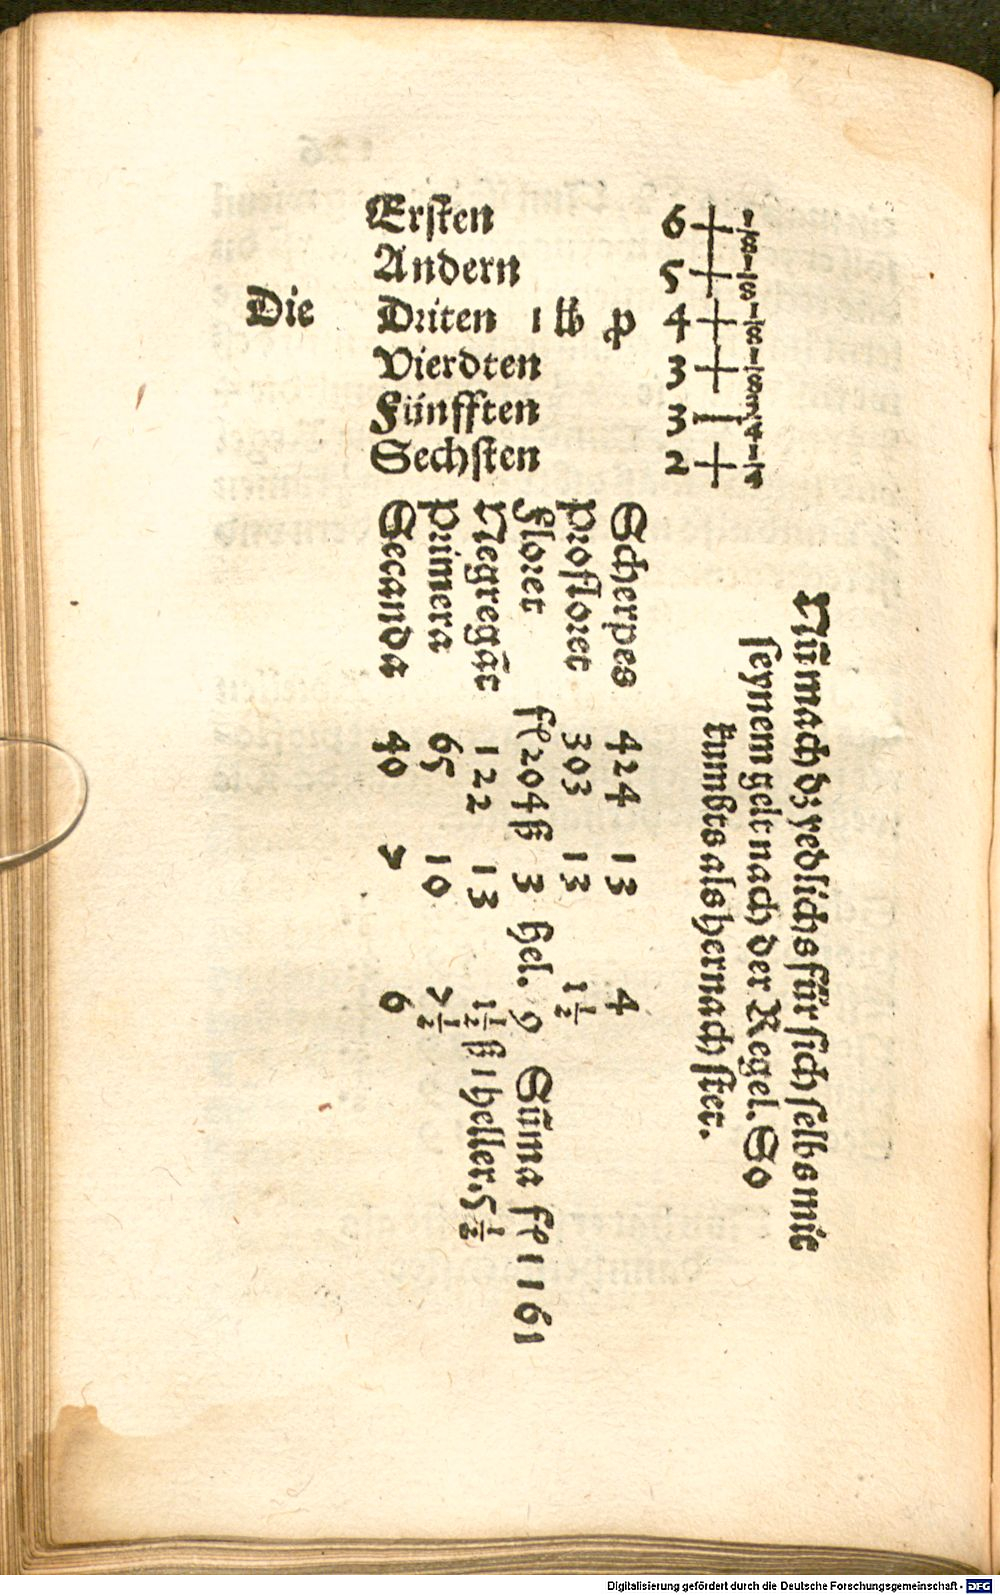 Die
Ersten 6 + 1/8
Andern 5 + 1/8
Driten 1 lb p 4 + 1/8
Vierdten 3 + 1/8
Fünfften 3 | 3/4
Sechsten 2 + 1/4
Nũ mach dz yedlichs für sich selbs mit
seynem gelt nach der Regel. So
kumbts als hernach stet.
Scherpes 424 13 4
Profloret 303 13 1 1/2
Floret fl 204 ß 3 hel. 9 Sũma fl 1161
Negregãt 122 13 1 1/2 ß 1 heller. 5 1/2
Primera 65 10 7 1/2
Secanda 40 7 6
Digitalisierung gefördert durch die Deutsche Forschungsgemeinschaft - DFG